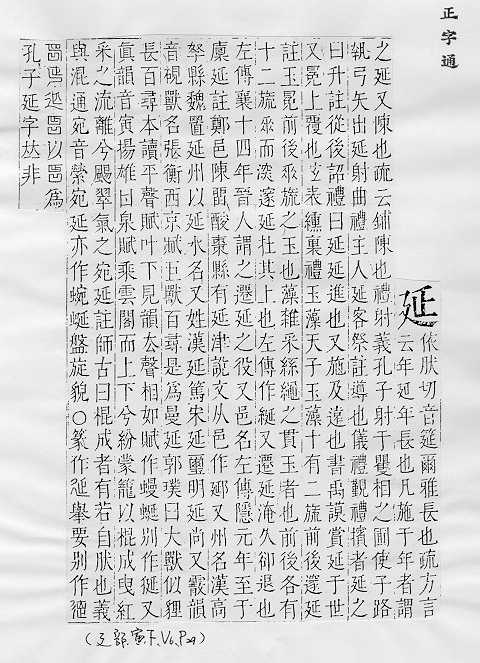 正字通
延 依肰切音筵爾雅長也疏方言
云年延年長也凡施于年者謂
之延又陳也疏云鋪陳也禮射義孔子射于矍相之圃使子路
執弓矢出延射曲禮主人延客祭註導也儀禮覲禮擯者延之
曰升註從後詔禮曰延延進也又施及遠也書禹謨賞延于世
又冕上覆也玄表纁裏禮玉藻天子玉藻十有二旒前後邃延
註玉冕前後垂旒之玉也藻雜采絲繩之貫玉者也前後各有
十二旒垂而深邃延在其上也左傳作綖又遷延淹久卻退也
左傳襄十四年晉人謂之遷延之役又邑名左傳隱元年至于
廩延註鄭邑陳留酸棗縣有延津說文从邑作郔又州名漢高
孥縣魏置延州以延水名又姓漢延篤宋延璽明延尚又霰韻
音硯獸名張衡西京賦巨獸百尋是爲曼延郭璞曰大獸似狸
長百尋本讀平聲賦叶下見韻去聲相如賦作蟃蜒別作狿又
眞韻音寅揚雄甘泉賦乘雲閣而上下兮紛蒙籠以棍成曳紅
采之流離兮颺翠氣之宛延註師古曰棍成者有若自肰也義
與混通宛音縈宛延亦作蜿蜒盤旋貌○篆作延舉要別作
以 爲
孔子延字𠀤非
(廴部,寅下,V6,P29)